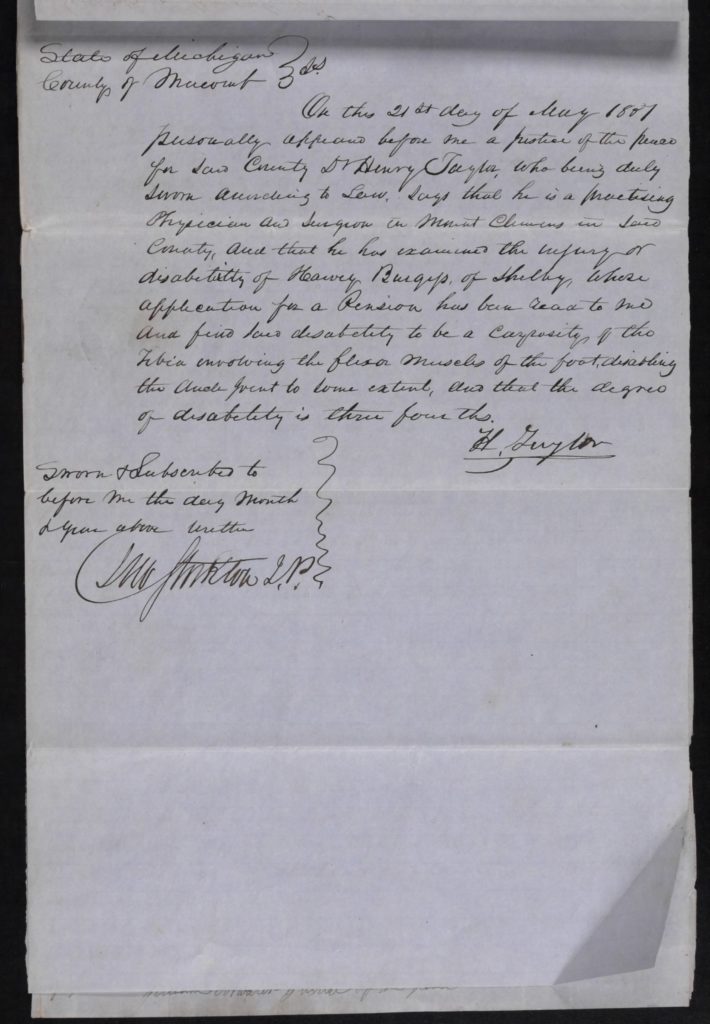 State of Michigan
County of Macomb } SS
On this 21st day of May 1857
personally appeared before me a Justice of the peace
for said County Dr Henry Taylor, who being duly
sworn according to Law, says that he is a practising
Physician and Surgeon in Mount Clemens in said
County, and that he has examined the injury or
disability of Harvey Burgess, of Shelby, whose
application for a Pension has been read to me
And find said disability to be a of the
Tibia involving the flexor muscles of the foot, disabling
the Ancle joint to some extent, and that the degree
of disability is three fourths.
H. Taylor
Sworn & Subscribed to
before me the day month
& year above written
Jno Stockton J.P.